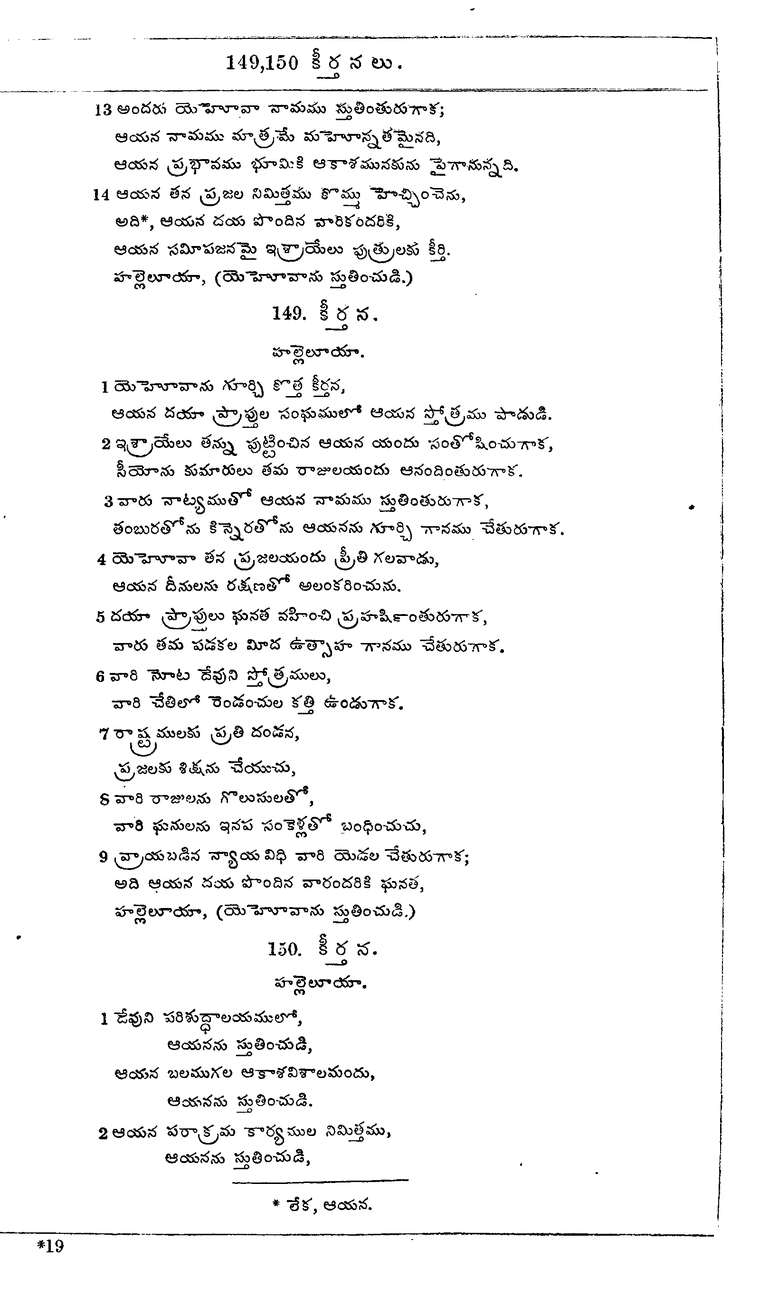 149,150 కీర్తనలు.
13 అందరు యెహోవా నామము స్తుతింతురుగాక;
ఆయన నామము మాత్రమే మహోన్నతమైనది,
ఆయన ప్రభావము భూమికి ఆకాశమునకును పైగానున్నది.
14 ఆయన తన ప్రజల నిమిత్తము కొమ్ము హెచ్చించెను,
అది*, ఆయన దయ పొందిన వారికందరికి,
ఆయన సమీపజనమై ఇశ్రాయేలు పుత్రులకు కీర్తి.
హల్లెలూయా, (యెహోవాను స్తుతించుడి.)
149. కీర్తన.
హల్లెలూయా.
1 యెహోవాను గూర్చి కొత్త కీర్తన,
ఆయన దయా ప్రాప్తుల సంఘములో ఆయన స్తోత్రము పాడుడి.
2 ఇశ్రాయేలు తన్ను పుట్టించిన ఆయన యందు సంతోషించుగాక,
సీయోను కుమారులు తమ రాజులయందు ఆనందింతురుగాక.
3 వారు నాట్యముతో ఆయన నామము స్తుతింతురుగాక,
తంబురతోను కిన్నెరతోను ఆయనను గూర్చి గానము చేతురుగాక.
4 యెహోవా తన ప్రజలయందు ప్రీతి గలవాడు,
ఆయన దీనులను రక్షణతో అలంకరించును.
5 దయా ప్రాప్తులు ఘనత వహించి ప్రహర్షింతురుగాక,
వారు తమ పడకల మీద ఉత్సాహ గానము చేతురుగాక.
6 వారి నోట దేవుని స్తోత్రములు,
వారి చేతిలో రెండంచుల కత్తి ఉండుగాక.
7 రాష్ట్రములకు ప్రతి దండన,
ప్రజలకు శిక్షను చేయుచు,
8 వారి రాజులను గొలుసులతో,
వారి ఘనులను ఇనప సంకెళ్లతో బంధించుచు,
9 వ్రాయబడిన న్యాయవిధి వారి యెడల చేతురుగాక;
అది ఆయన దయ పొందిన వారందరికి ఘనత,
హల్లెలూయా, (యెహోవాను స్తుతించుడి.)
150. కీర్తన.
హల్లెలూయా.
1 దేవుని పరిశుద్ధాలయములో,
ఆయనను స్తుతించుడి,
ఆయన బలముగల ఆకాశవిశాలమందు,
ఆయనను స్తుతించుడి.
2 ఆయన పరాక్రమ కార్యముల నిమిత్తము,
ఆయనను స్తుతించుడి,
* లేక, ఆయన.
*19